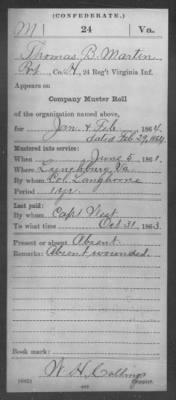 (CONFEDERATE.)
M 24 Va.
Thomas B. Martin
Pvt, Co. H, 24 Reg't Virginia Inf.
Appears on
Company Muster Roll
of the organization named above,
for Jan. & Feb, 1864.
dated Feb 29, 1864
Mustered into service:
When June 5, 1861.
Where Lynchburg, Va.
By whom Col. Langhorne
Period 1 yr.
Last paid:
By whom Capt. West
To what time Oct 31, 1863.
Present or absent Absent
Remarks: Absent wounded.
Book mark:
W. H. Collings
Copyist.